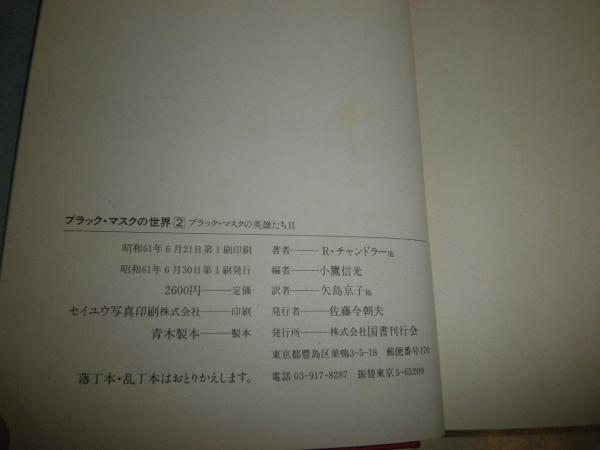 ブラック・マスクの世界 2 ブラック・マスクの英雄たちII
昭和61年6月21日第1刷印刷
昭和61年6月30日第1刷発行
2600円――定価
セイユウ写真印刷株式会社――印刷
青木製本――製本
落丁本・乱丁本はおとりかえします。
著者――R・チャンドラー他
編者――小鷹信光
訳者――矢島京子他
発行者――佐藤今朝夫
発行所――株式会社国書刊行会
東京都豊島区巣鴨3-5-18 郵便番号170
電話 03-917-8287 振替東京5-65209